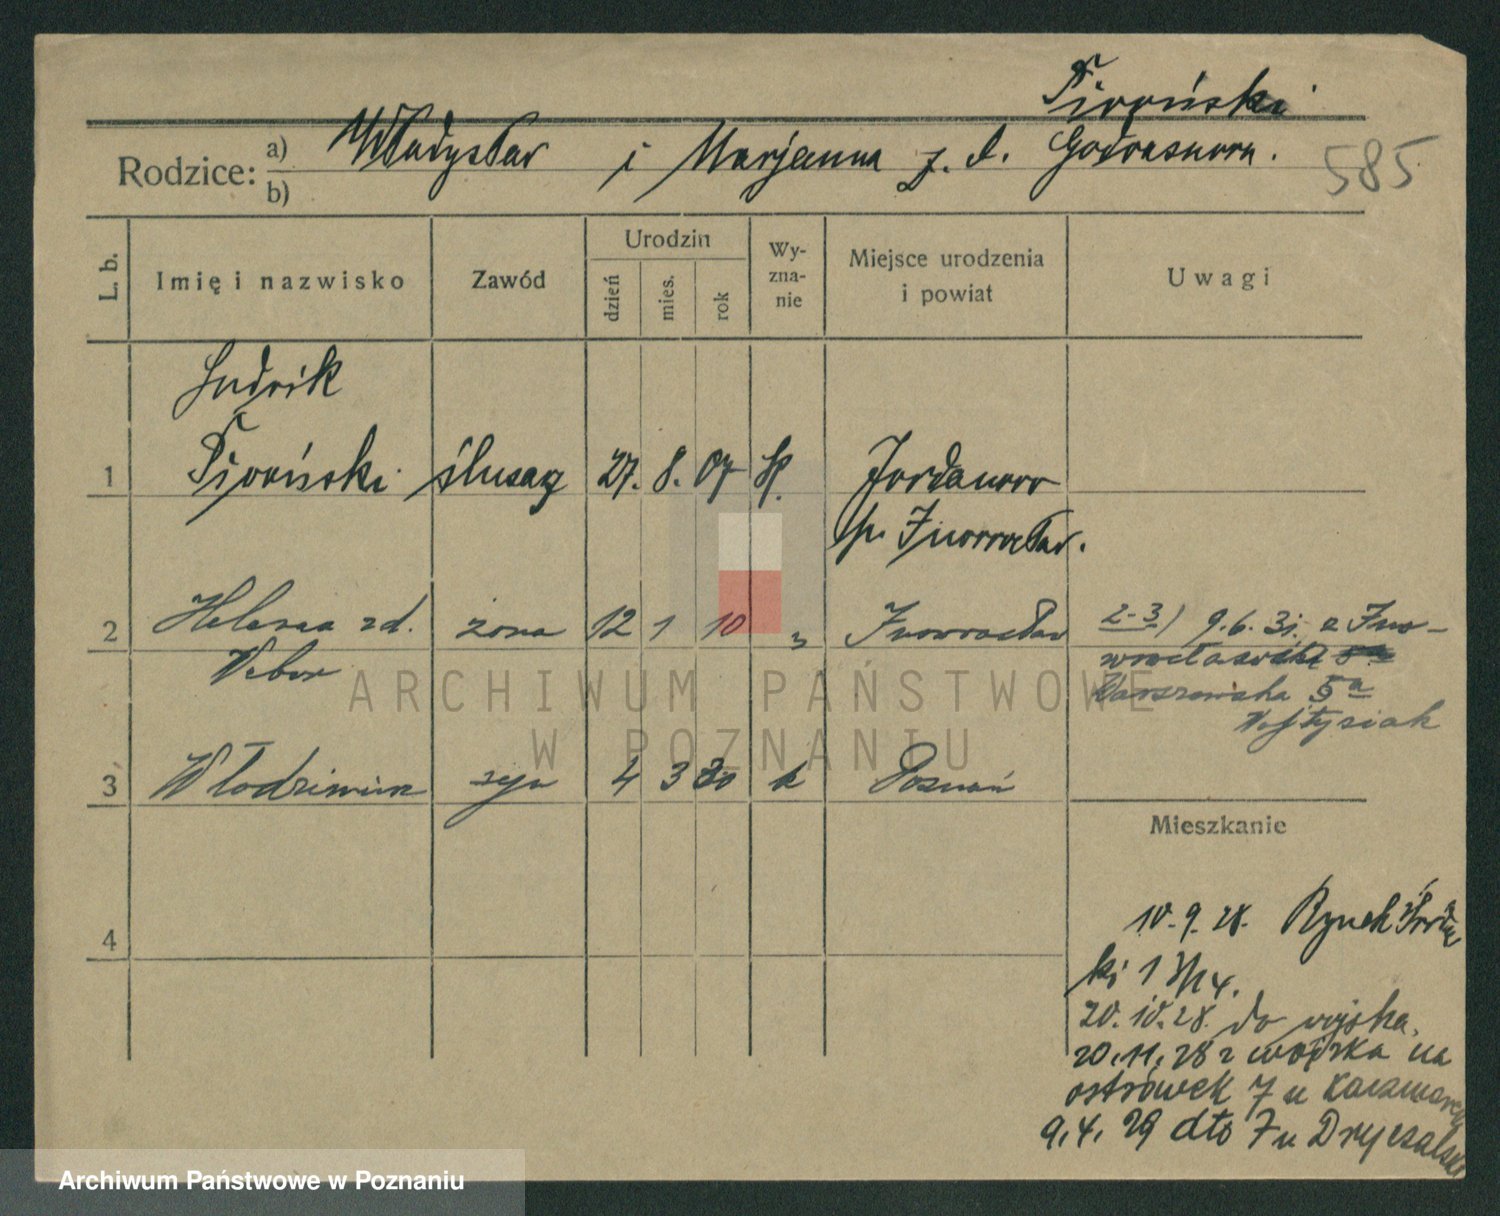 Rodzice: a) Władysław i Marjanna z. d.
b)
585
L. b.
Imię i nazwisko
Zawód
Urodzin
dzień
mies.
rok
Wy-
zna-
nie
Miejsce urodzenia
i powiat
Uwagi
Ludwik
1 ślusarz 27. 8. 07
p. Inowrocław.
2 Helena zd. żona 12 1 10 " Inowrocław
Weber
2-3) 9.6.31. z Ino-
wrocławia
Warszawska 5a
Wojtysiak
3 Włodzimierz syn 4 3 30 k Poznań
Mieszkanie
4
10.9.28. Rynek Śród
ki 1
20.10.28. do wojska.
20.11.28 z wojska na
ostrówek 7 u Kaczmarek
9.4.29 dto 7 u
ARCHIWUM PAŃSTWOWE
W POZNANIU
Archiwum Państwowe w Poznaniu